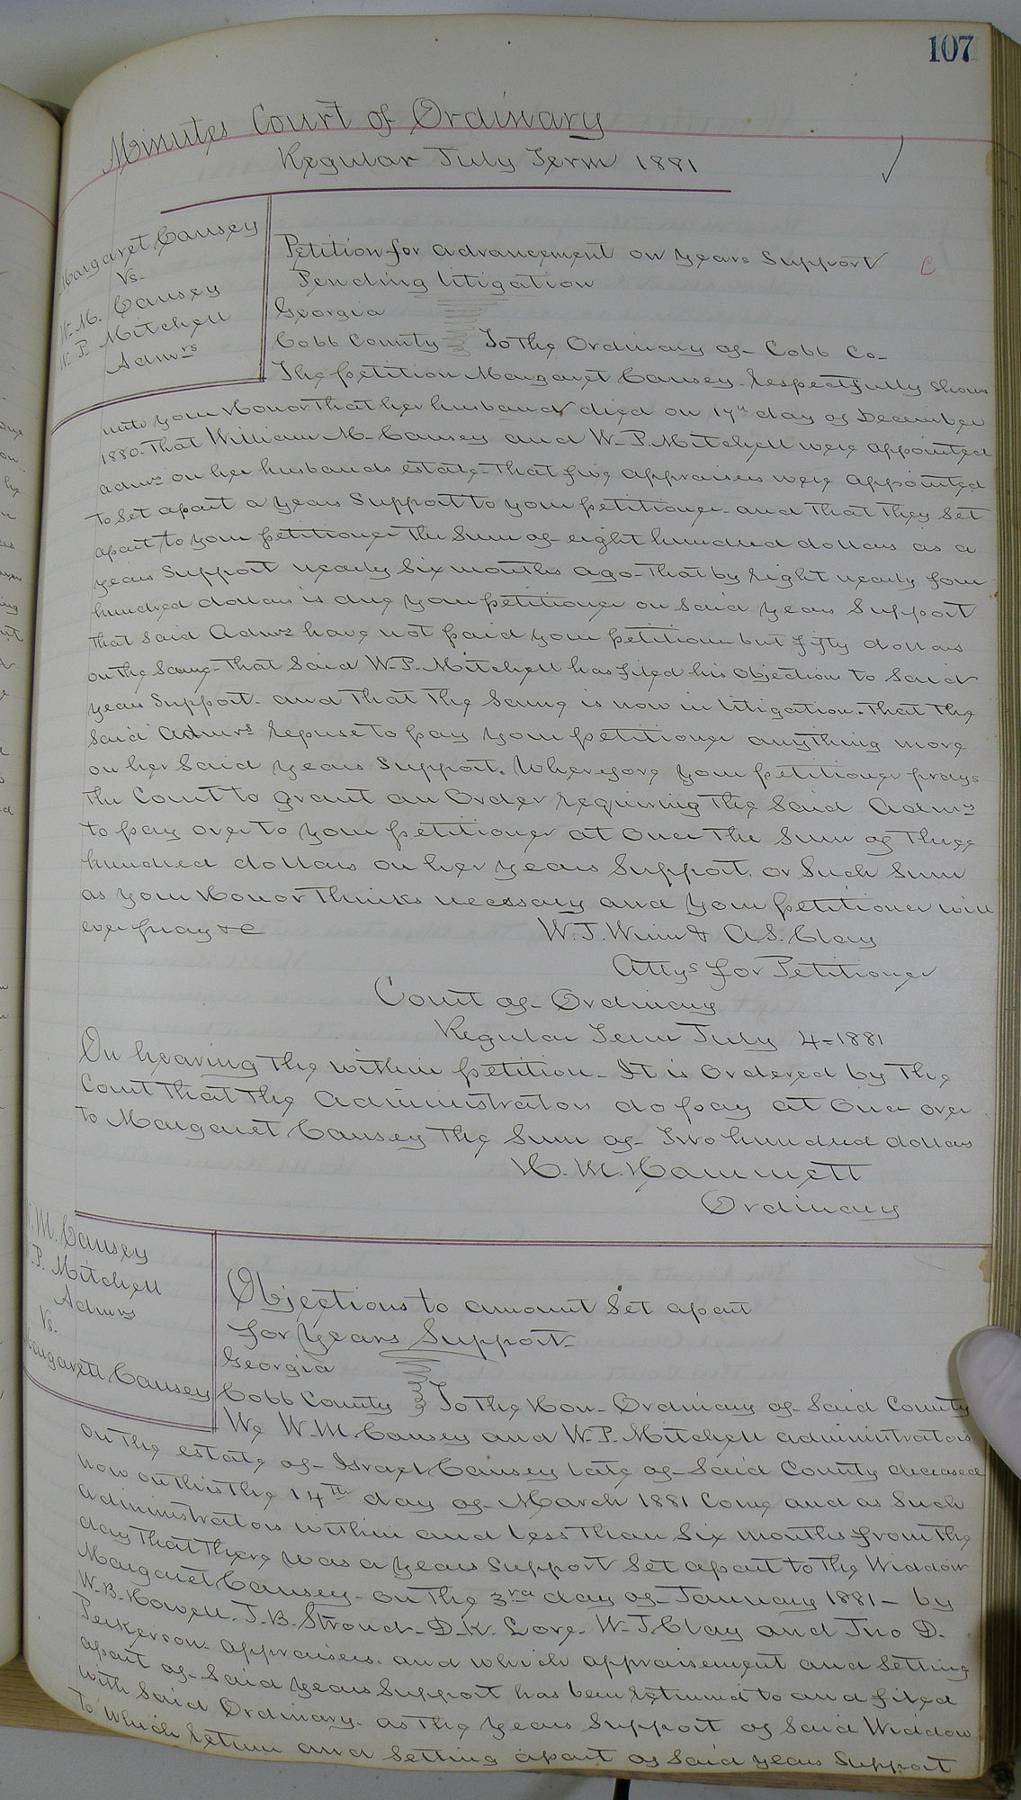 107
Minutes Court of Ordinary
Regular July Term 1881
Margaret Causey
Vs.
W. M. Causey
W. P. Mitchell
Admrs
Petition for advancement on years Support
Pending litigation
Georgia
Cobb County To the Ordinary of Cobb Co-
The petition Margaret Causey Respectfully shows
unto your Honor That her husband died on 17th day of December
1880. That William M. Causey and W. P. Mitchell were appointed
admrs on her husbands estate. That five appraisers were appointed
to set apart a years Support to your petitioner and that they set
apart to your petitioner the sum of eight hundred dollars as a
years Support nearly six months ago. That by right nearly four
hundred dollars is due your petitioner on said years Support
that said Admrs have not paid your petitioner but fifty dollars
on the same. That said W. P. Mitchell has filed his objections to said
years Support. and that the same is now in litigation. That the
said Admrs refuse to pay your petitioner anything more
on her said years Support. Wherefore your petitioner prays
the Court to grant an Order requiring the said Admrs
to pay over to your petitioner at once the sum of three
hundred dollars on her years Support. or such sum
as your Honor thinks necessary and your petitioner will
ever pray &c W. T. Winn & A. S. Clay
Attys for Petitioner
Court of Ordinary
Regular Term July 4=1881
On hearing the within petition. It is ordered by the
Court that the administrators do pay at once over
to Margaret Causey the sum of Two hundred dollars
H. M. Hammett
Ordinary
W. M. Causey
W. P. Mitchell
Admrs
Vs.
Margarett Causey
Objections to amount set apart
for years Support
Georgia
Cobb County To the Hon. Ordinary of said County
We W. M. Causey and W. P. Mitchell administrators
on the estate of Israel Causey late of said County deceased
now on this the 14th day of March 1881 come and as such
administrators within and less than six months from the
day that there was a years support set apart to the Widdow
Margaret Causey on the 3rd day of January 1881 - by
W. B. Howell. J. B. Stroud. D. K. Lore. W. J. Clay and Jno D.
Perkerson. appraisers. and which appraisement and setting
apart of said years Support has been returned to and filed
with said Ordinary. as the years Support of said Widdow
to which return and setting apart of said years Support